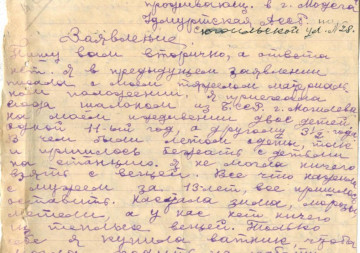 проживающ. в г. Можга
Удмуртская Асср. по
ской ул. №28.
Заявление.
Пишу вам вторично, а ответа
нет. Я в предыдущем заявлении
писала о моем тяжелом материаль
ном положении. Я приехала
сюда эшалоном из БССР г. Могилева
на моем иждивении двое детей
одной 11-ый год, а другому 3½ года
в чем были летом одеты, тоже
пришлось бежать с детьми
на станцию. Я не могла ничего
взять с вещей. Все что нажила
с мужем за 13 лет, все пришлось
оставить. Настала зима, морозы
метели, а у нас нет ничего
из теплых вещей. Только
себе я купила ватник чтоб